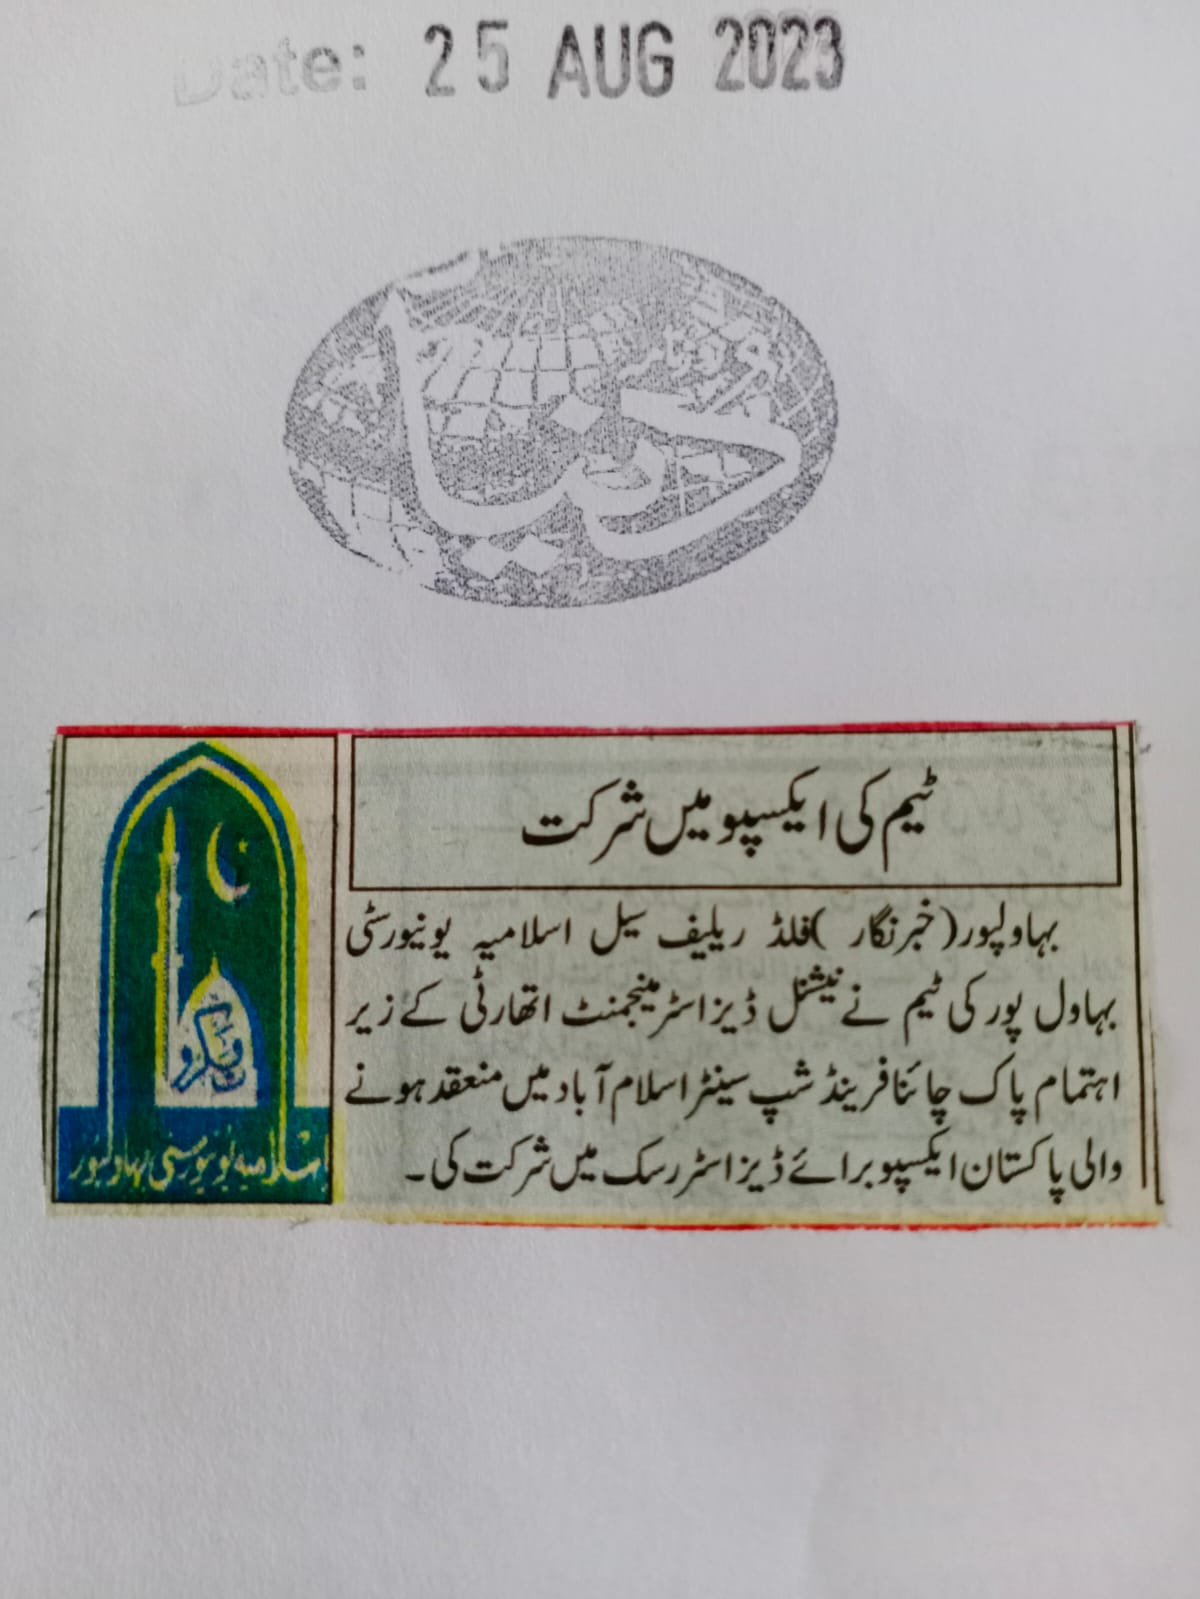 Date: 25 AUG 2023
روزنامہ
دنیا
ٹیم کی ایکسپو میں شرکت
بہاولپور(خبرنگار )فلڈ ریلیف سیل اسلامیہ یونیورسٹی
بہاول پور کی ٹیم نے نیشنل ڈیزاسٹر مینجمنٹ اتھارٹی کے زیر
اہتمام پاک چائنا فرینڈ شپ سینٹر اسلام آباد میں منعقد ہونے
والی پاکستان ایکسپو برائے ڈیزاسٹر رسک میں شرکت کی۔
اسلامیہ یونیورسٹی بہاولپور